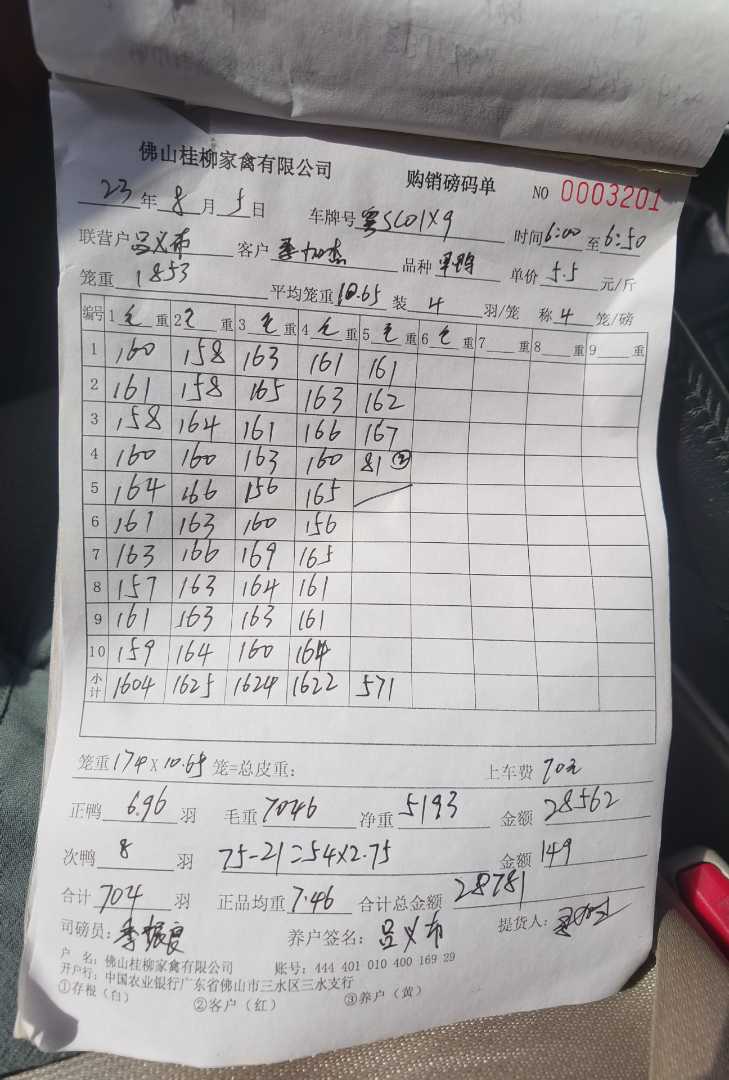 佛山桂柳家禽有限公司 购销磅码单 NO 0003201
23年 8月 5日 车牌号 SC01X9 时间 6:00 至 6:50
联营户 吕义布 客户 品种 单价 5.5 元/斤
笼重 1853 平均笼重 10.65 装 4 羽/笼 称 4 笼/磅
编号 1 毛 重 2 毛 重 3 毛 重 4 毛 重 5 毛 重 6 毛 重 7 重 8 重 9 重
1 160 158 163 161 161
2 161 158 165 163 162
3 158 164 161 166 167
4 160 160 163 160 81 ②
5 164 166 156 165
6 161 163 160 156
7 163 166 169 165
8 157 163 164 161
9 161 163 163 161
10 159 164 160 164
小计 1604 1625 1624 1622 571
笼重 174 x 10.65 笼=总皮重: 上车费 70元
正鸭 6.96 羽 毛重 7046 净重 5193 金额 28562
次鸭 8 羽 75-21=54×2.75 金额 149
合计 704 羽 正品均重 7.46 合计总金额 28781
司磅员: 李振良 养户签名: 吕义布 提货人:
户 名: 佛山桂柳家禽有限公司 账号: 444 401 010 400 169 29
开户行: 中国农业银行广东省佛山市三水区三水支行
①存根(白) ②客户(红) ③养户(黄)